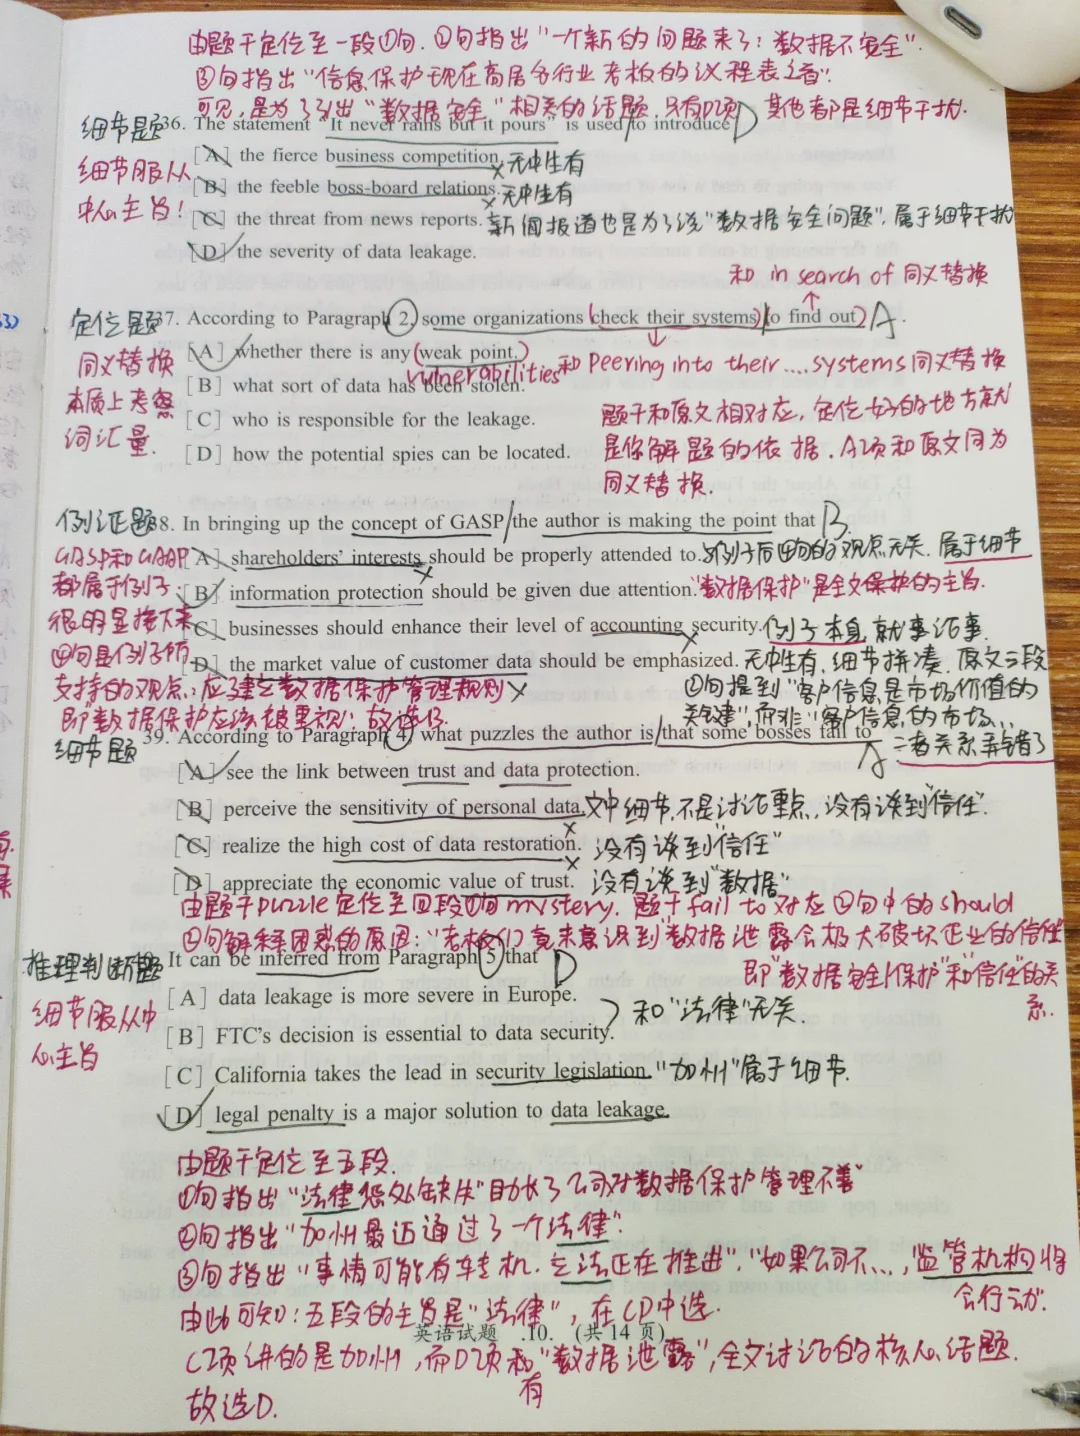 由题干定位至一段①句.②句指出"一个新的问题来了:数据不安全".
③句指出"信息保护现在高居各行业老板的议程表之首".
可见,是为了引出"数据安全"相关的话题.只有D项 其他都是细节干扰.
细节题 36. The statement "It never rains but it pours" is used to introduce D
细节服从
中心主旨!
[A] the fierce business competition. 无中生有
[B] the feeble boss-board relations. 无中生有
[C] the threat from news reports. 新闻报道也是为了说"数据安全问题",属于细节干扰
[D] the severity of data leakage.
和 in search of 同义替换
定位题 37. According to Paragraph 2, some organizations check their systems to find out A.
同义替换
本质上考察
词汇量.
[A] whether there is any weak point.
vulnerabilities 和 Peering into their .... systems 同义替换
[B] what sort of data has been stolen.
[C] who is responsible for the leakage.
[D] how the potential spies can be located.
题干和原文相对应,定位好的地方就
是你解题的依据.A项和原文同为
同义替换.
例证题 38. In bringing up the concept of GASP the author is making the point that B
GASP和GAAP
都属于例子
很明显接下来
④句是例子所
支持的观点:应建立数据保护管理规则
即"数据保护应该被重视".故选B.
[A] shareholders' interests should be properly attended to. 与例子后④句的观点无关.属于细节
[B] information protection should be given due attention. "数据保护"是全文保护的主旨.
[C] businesses should enhance their level of accounting security. 例子本身,就事论事.
[D] the market value of customer data should be emphasized. 无中生有,细节拼凑.原文三段
②句提到"客户信息是市场价值的
关键",而非"客户信息的市场..
二者关系弄错了
细节题 39. According to Paragraph 4, what puzzles the author is that some bosses fail to A
[A] see the link between trust and data protection.
[B] perceive the sensitivity of personal data. 文中细节,不是讨论重点,没有谈到"信任".
[C] realize the high cost of data restoration. 没有谈到"信任"
[D] appreciate the economic value of trust. 没有谈到"数据"
由题干puzzle定位至四段①句mystery. 题干fail to对应②句中的should
②句解释困惑的原因:"老板们竟未意识到"数据泄露会极大破坏企业的信任"
即"数据安全/保护"和"信任"的关
系.
推理判断题 It can be inferred from Paragraph 5 that D
细节服从中
心主旨
[A] data leakage is more severe in Europe.
和"法律"无关.
[B] FTC's decision is essential to data security.
[C] California takes the lead in security legislation. "加州"属于细节.
[D] legal penalty is a major solution to data leakage.
由题干定位至五段.
①句指出"法律惩处缺失"助长了公司对数据保护管理不善"
②句指出"加州最近通过了一个法律".
③句指出"事情可能有转机.立法正在推进"."如果公司不...,监管机构将
会行动".
由此可知:五段的主旨是"法律",在CD中选.
英语试题 .10. (共14页)
C项讲的是加州,而D项和"数据泄露",全文讨论的核心话题.
有
故选D.